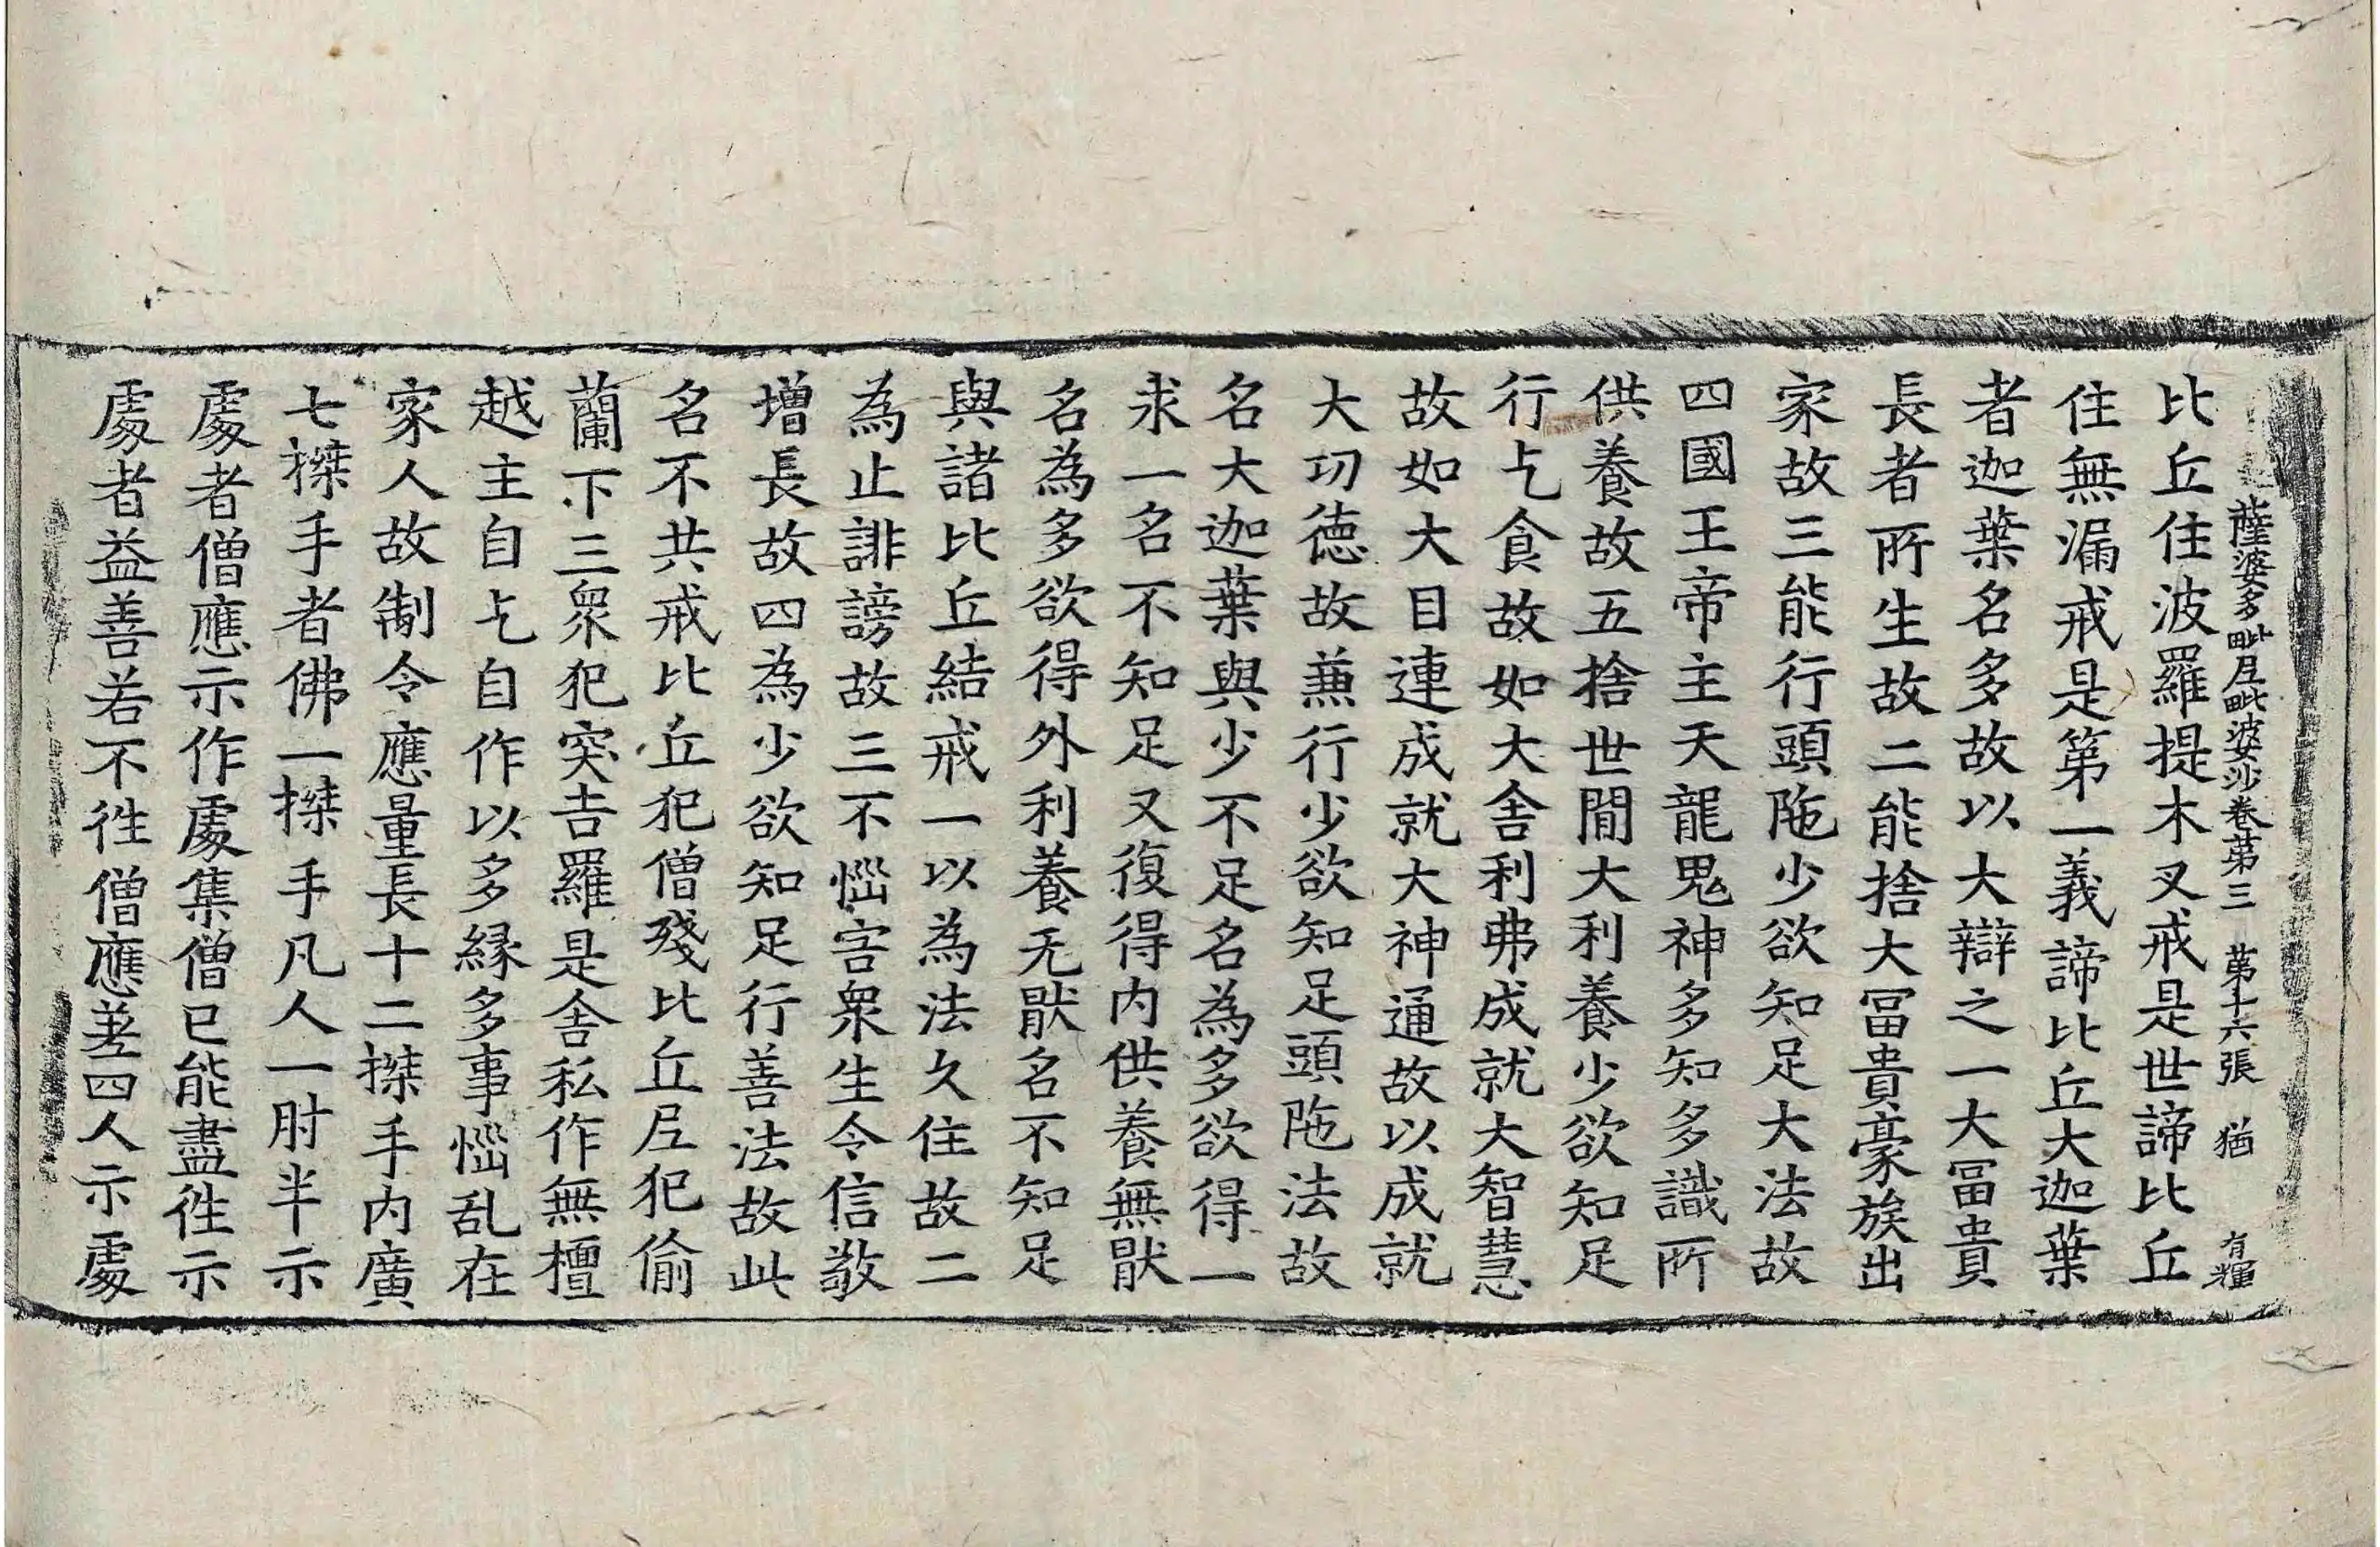 薩婆多毗尼毗婆沙卷第三 第十六張 猶 有輝
比丘住波羅提木叉戒是世諦比丘
住無漏戒是第一義諦比丘大迦葉
者迦葉名多故以大辯之一大冨貴
長者所生故二能捨大冨貴豪族出
家故三能行頭陁少欲知足大法故
四國王帝主天龍鬼神多知多識所
供養故五捨世間大利養少欲知足
行乞食故如大舎利弗成就大智慧
故如大目連成就大神通故以成就
大功徳故兼行少欲知足頭陁法故
名大迦葉與少不足名為多欲得一
求一名不知足又復得内供養無猒
名為多欲得外利養无猒名不知足
與諸比丘結戒一以為法久住故二
為止誹謗故三不惱害衆生令信敬
增長故四為少欲知足行善法故此
名不共戒比丘犯僧殘比丘尼犯偷
蘭下三衆犯突吉羅是舎私作無檀
越主自乞自作以多縁多事惱乱在
家人故制令應量長十二搩手内廣
七搩手者佛一搩手凡人一肘半示
處者僧應示作處集僧已能盡徃示
處者益善若不徃僧應差四人示處